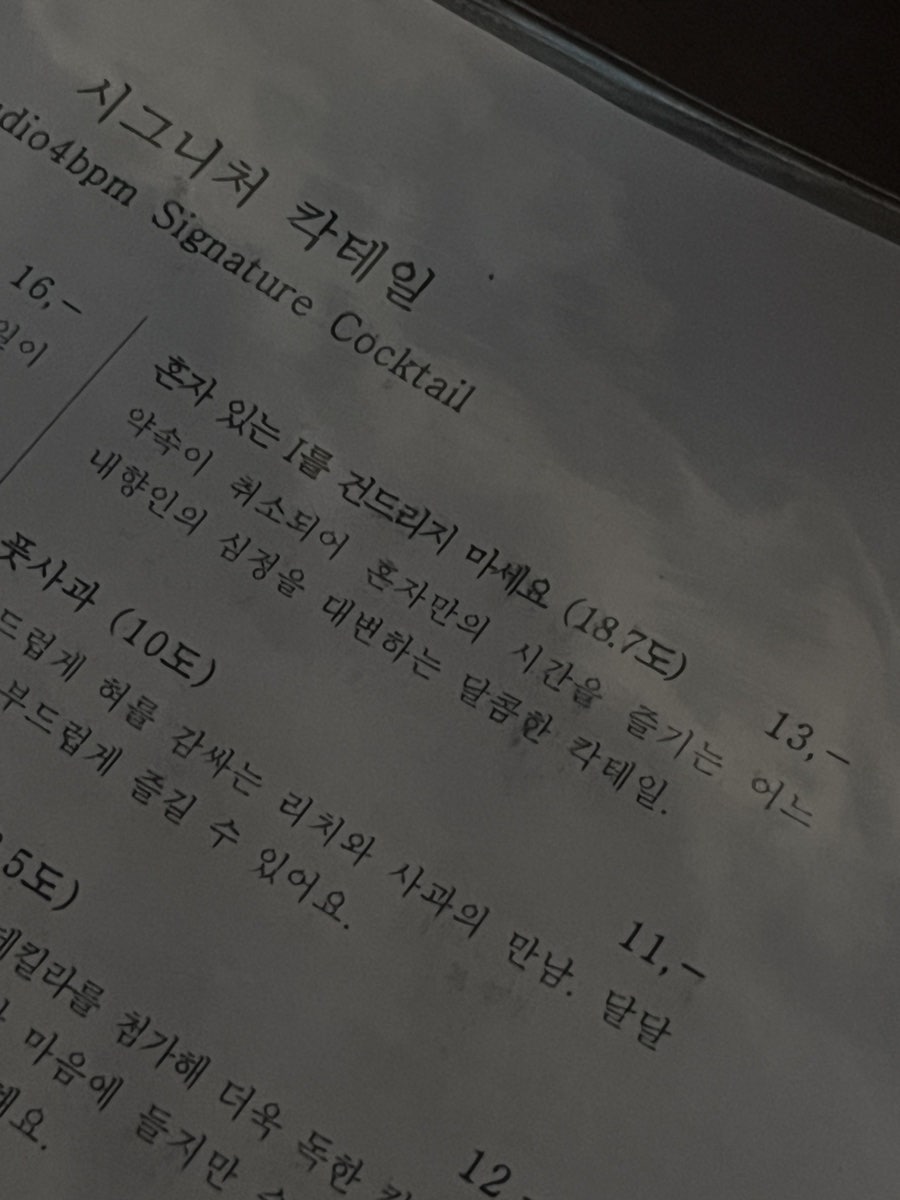 시그니처 칵테일
dio4bpm Signature Cocktail
16,-
일이
혼자 있는 I를 건드리지 마세요 (18.7도)
13,-
약속이 취소되어 혼자만의 시간을 즐기는 어느
내향인의 심정을 대변하는 달콤한 칵테일.
풋사과 (10도)
11,-
드럽게 혀를 감싸는 리치와 사과의 만남. 달달
부드럽게 즐길 수 있어요.
5도)
12
테킬라를 첨가해 더욱 독한
마음에 들지만
데요.